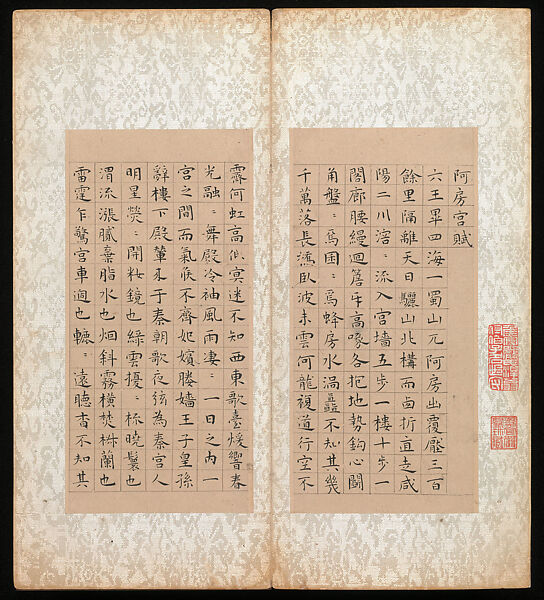 阿房宮賦
六王畢四海一蜀山兀阿房出覆壓三百
餘里隔離天日驪山北構而西折直走咸
陽二川溶〻流入宮墻五步一樓十步一
閣廊腰縵迴簷牙高啄各抱地勢鈎心鬭
角盤〻焉囷〻焉蜂房水渦矗不知其幾
千萬落長橋臥波未雲何龍複道行空不
霽何虹高低冥迷不知西東歌臺煖響春
光融〻舞殿冷袖風雨凄〻一日之內一
宮之間而氣候不齊妃嬪媵嬙王子皇孫
辭樓下殿輦來于秦朝歌夜弦為秦宮人
明星熒〻開粧鏡也綠雲擾〻梳曉鬟也
渭流漲膩棄脂水也烟斜霧橫焚椒蘭也
雷霆乍驚宮車過也轆〻遠聽杳不知其